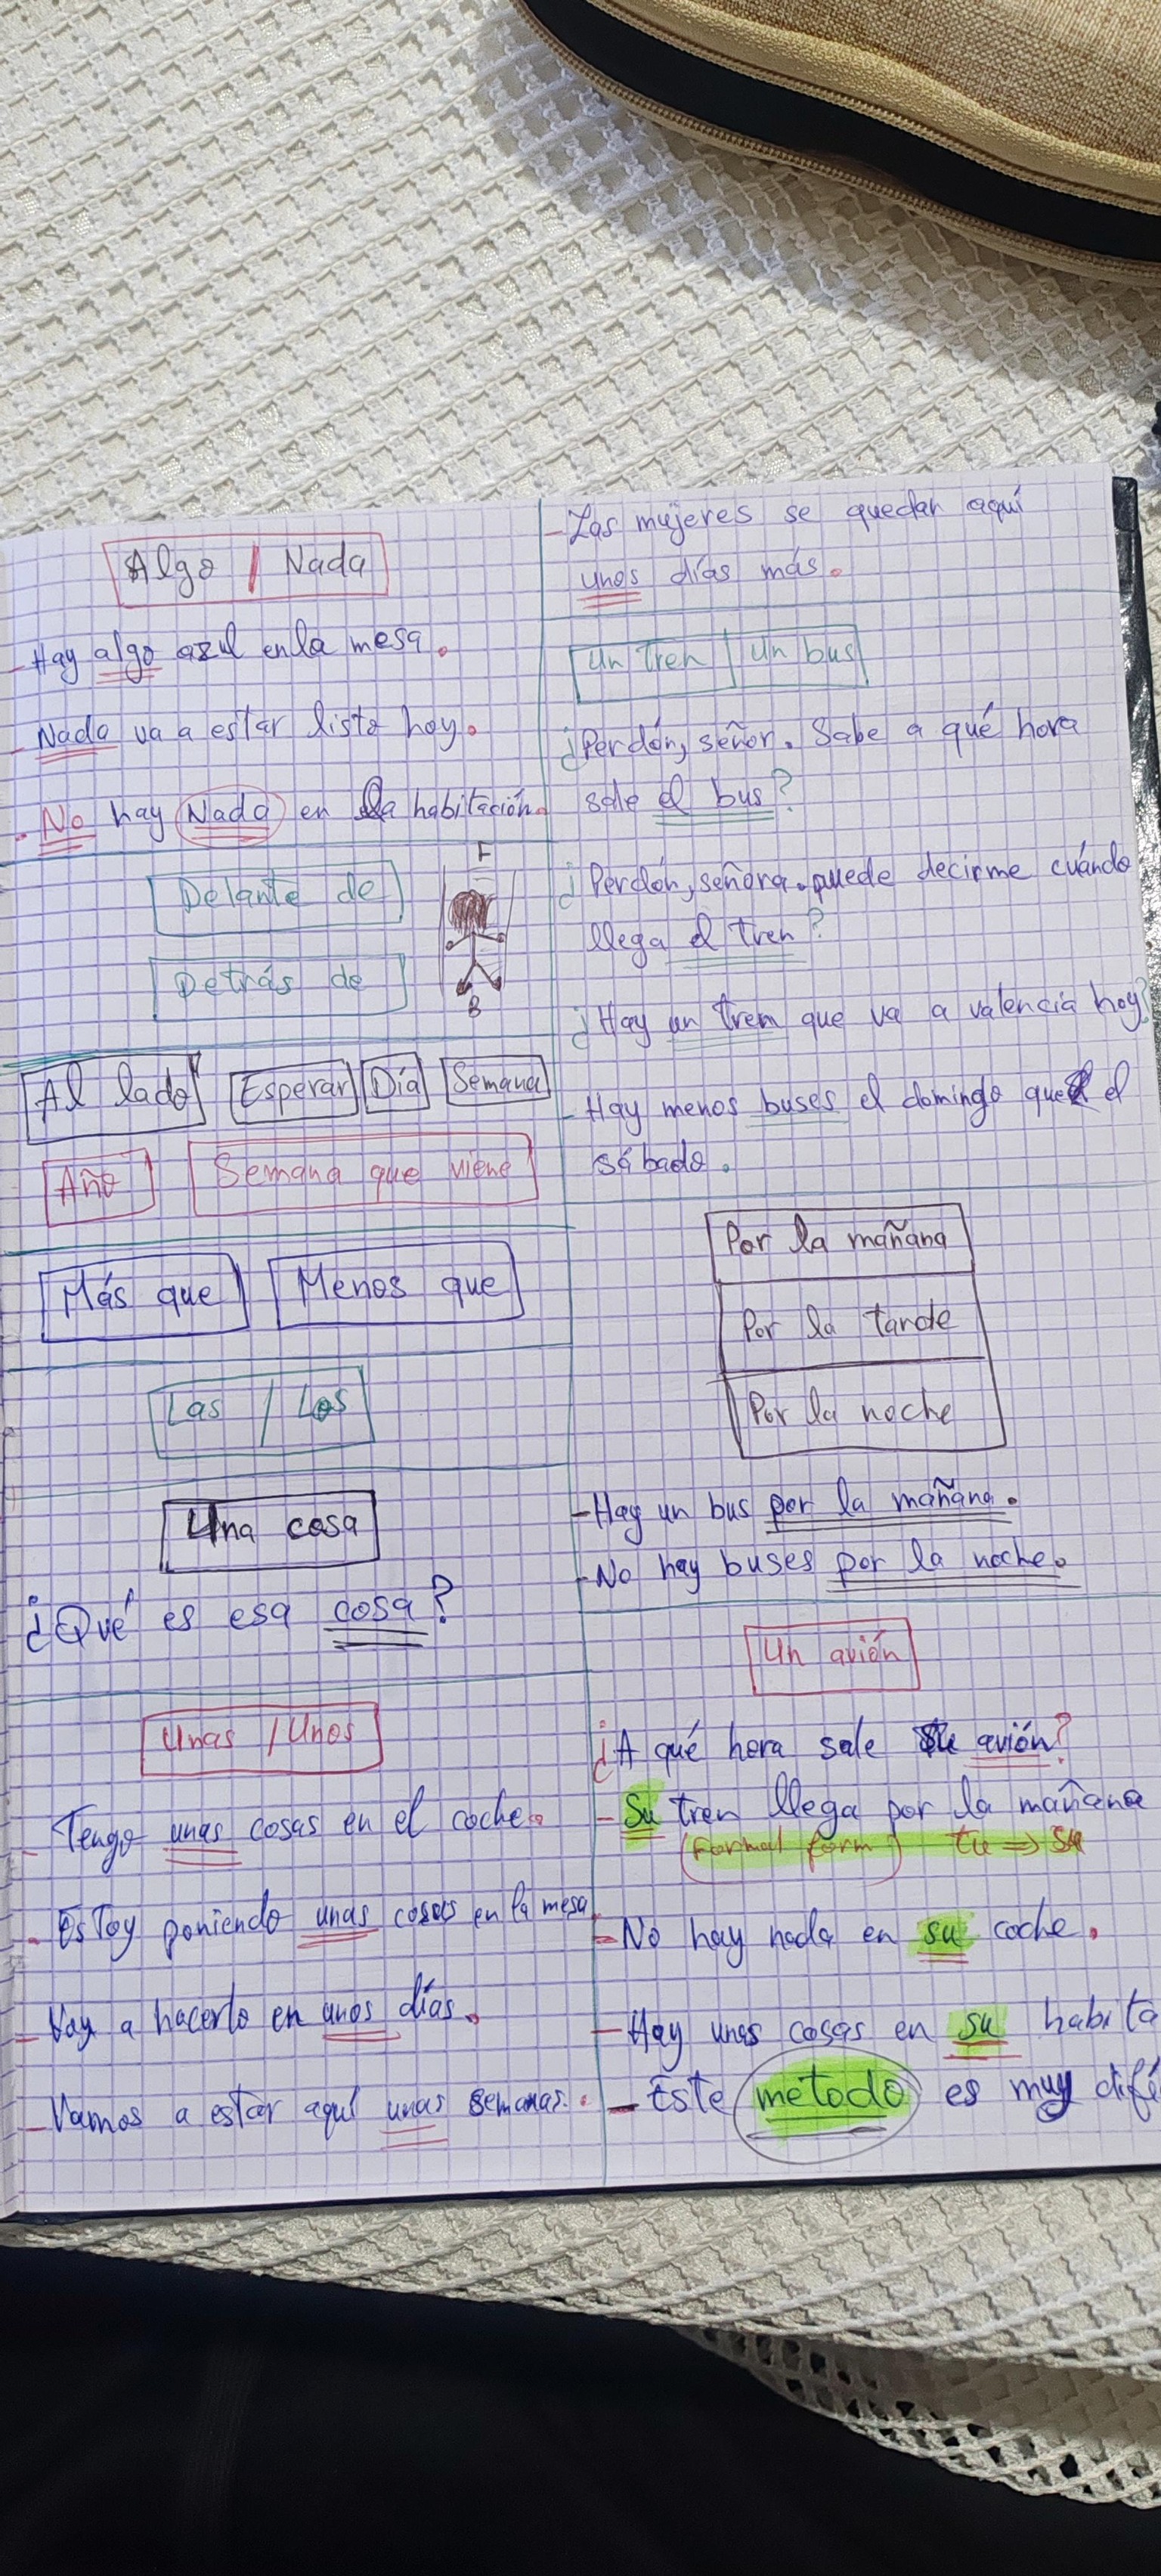 Algo / Nada
- Hay algo azul en la mesa.
- Nada va a estar listo hoy.
- No hay Nada en la habitación.
Delante de
F
Detrás de
B
Al lado
Esperar
Día
Semana
Año
Semana que viene
Más que
Menos que
Las / Los
Una cosa
¿Qué es esa cosa?
Unas / Unos
- Tengo unas cosas en el coche.
- Estoy poniendo unas cosas en la mesa
- Voy a hacerlo en unos días.
- Vamos a estar aquí unas semanas.
- Las mujeres se quedan aquí
unos días más.
Un Tren
Un bus
¿Perdón, señor. Sabe a qué hora
sale el bus?
¿Perdón, señora. puede decirme cuándo
llega el tren?
¿Hay un trem que va a valencia hoy?
- Hay menos buses el domingo que el
sábado.
Por la mañana
Por la tarde
Por la noche
- Hay un bus por la mañana.
- No hay buses por la noche.
Un avión
¿A qué hora sale su avión?
- Su tren llega por la mañana
(Formal form) tu => su
- No hay nada en su coche.
- Hay unas cosas en su habita
- Este metodo es muy difí